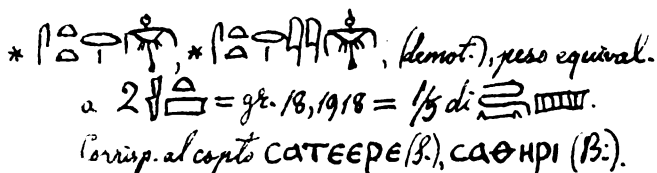 * , * , (demot.), peso equival.
a 2 = gr. 18,1918 = 1/5 di .
Corrisp. al copto ⲥⲁⲧⲉⲉⲣⲉ (S.), ⲥⲁⲑⲏⲣⲓ (B.).